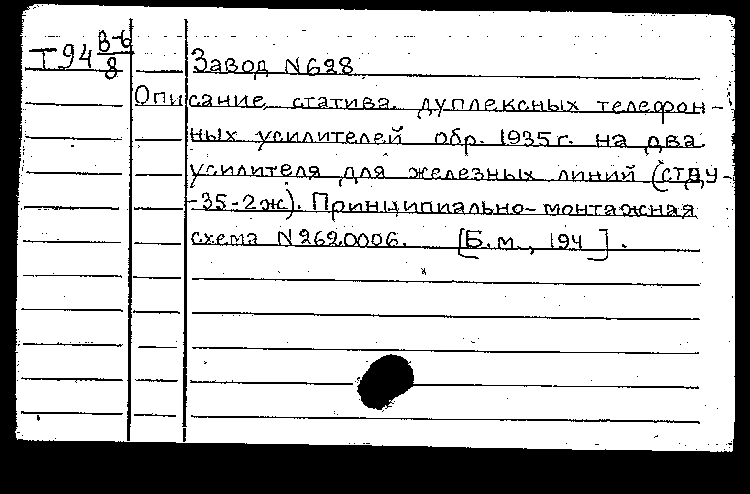 Т94 В-6/8
Завод N628
Описание статива дуплексных телефон-
ных усилителей обр. 1935 г. на два
усилителя для железных линий (СТДУ-
-35-2ж). Принципиально-монтажная
схема N2620006. [Б.м., 194 ].